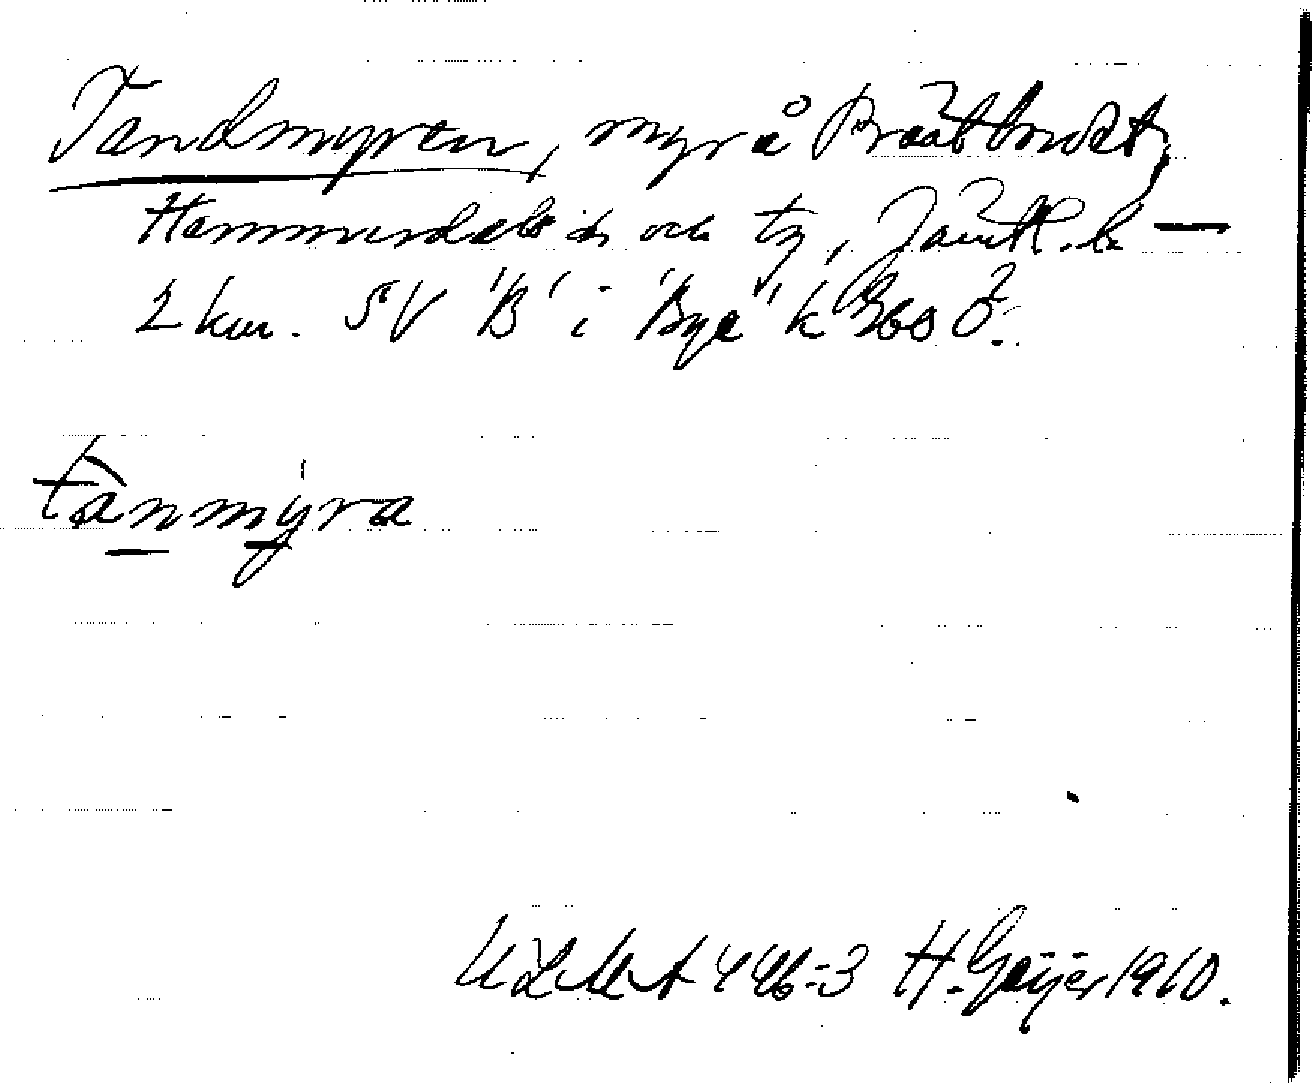 Tandmyren, myr å Prästbordet,
Hammerdals sn och tg, Jämtl. l. —
2 km. SV 'B' i 'Bye' k 360 Ö.
tànmýra
ULMA 446:3 H. Geijer 1910.